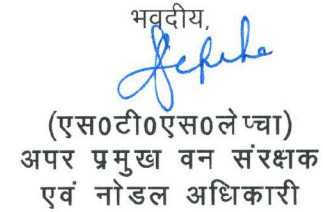 भवदीय,
(एस0टी0एस0लेप्चा)
अपर प्रमुख वन संरक्षक
एवं नोडल अधिकारी